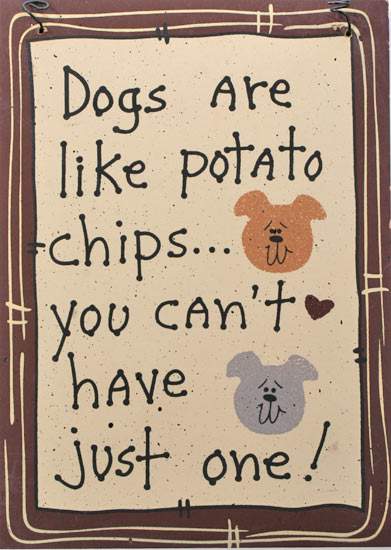 Dogs are
like potato
chips...
you can't
have
just one!